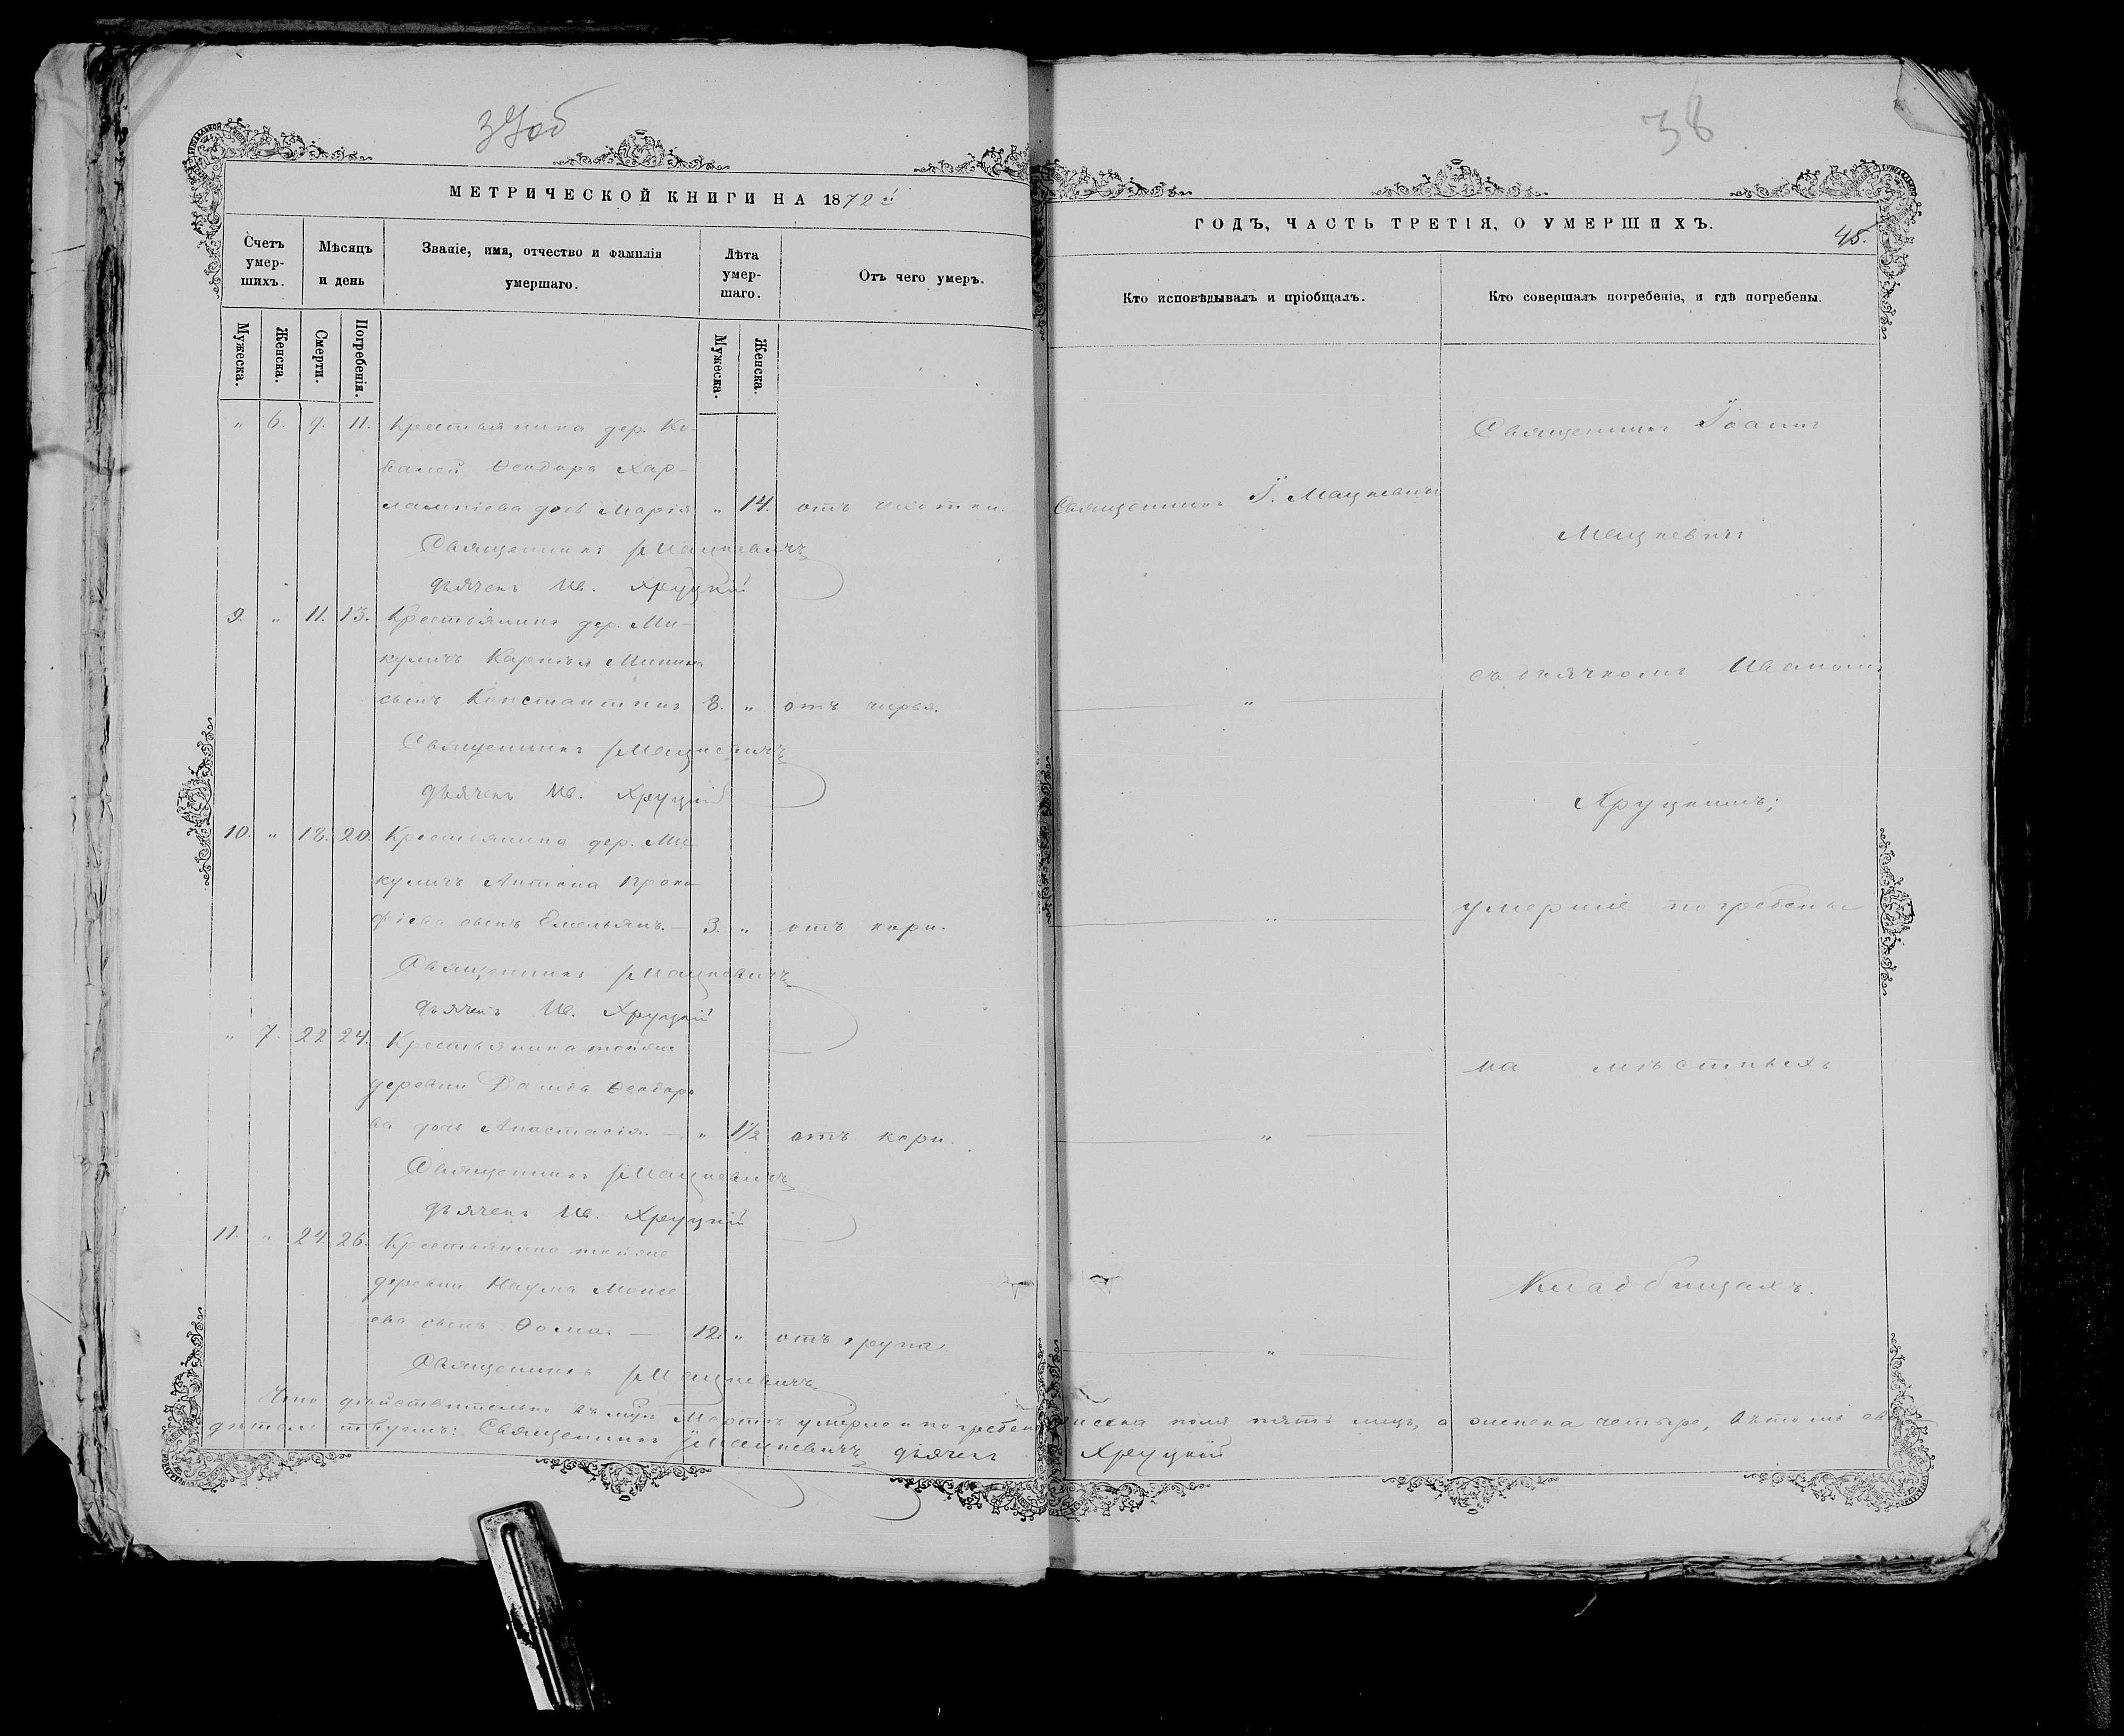 37об
38
МЕТРИЧЕСКОЙ КНИГИ НА 1872 й
ГОДЪ, ЧАСТЬ ТРЕТІЯ, О УМЕРШИХЪ.
45.
Счетъ умер- шихъ.
Мѣсяцъ и день
Званіе, имя, отчество и фамилія умершаго.
Лѣта умер- шаго.
Отъ чего умеръ.
Кто исповѣдывалъ и пріобщалъ.
Кто совершалъ погребеніе, и гдѣ погребены.
Мужеска.
Женска.
Смерти.
Погребенія.
Мужеска.
Женска.
" 6. 9. 11. Крестьянина дер. Ко-
валей Ѳеодора Хар-
лампіева дочь Марія " 14. отъ чахотки. Священникъ І. Мацкевичъ
Священникъ Мацкевичъ
дьячекъ Ив. Хруцкій
9. " 11. 13. Крестьянина дер. Ми-
куличъ Карпія Минина
сынъ Константинъ 8. " отъ чирья. "
Священникъ Мацкевичъ
дьячекъ Ив. Хруцкій
10. " 18. 20. Крестьянина дер. Ми
куличъ Антона Проко
фіева сынъ Емельянъ. — 3. " отъ кори. "
Священникъ Мацкевичъ
дьячекъ Ив. Хруцкій
" 7. 22 24. Крестьянина тойже
деревни Данила Ѳеодоро
ва дочь Анастасія. — " 1½ отъ кори. "
Священникъ Мацкевичъ
дьячекъ Ив. Хруцкій
11. " 24 26. Крестьянина тойже
деревни Наума Моисе
ева сынъ Ѳома. — 12. " отъ крупа. "
Священникъ Мацкевичъ
Священникъ Іоаннъ
Мацкевичъ
съ дьячкомъ Иваномъ
Хруцкимъ;
умершіе погребены
на мѣстныхъ
Кладбищахъ.
Что дѣйствительно въ Мартѣ умерло и погребено мужеска пола пять лицъ, а женска четыре, въ томъ сви
дѣтельствуютъ: Священникъ Мацкевичъ дьячекъ Хруцкій